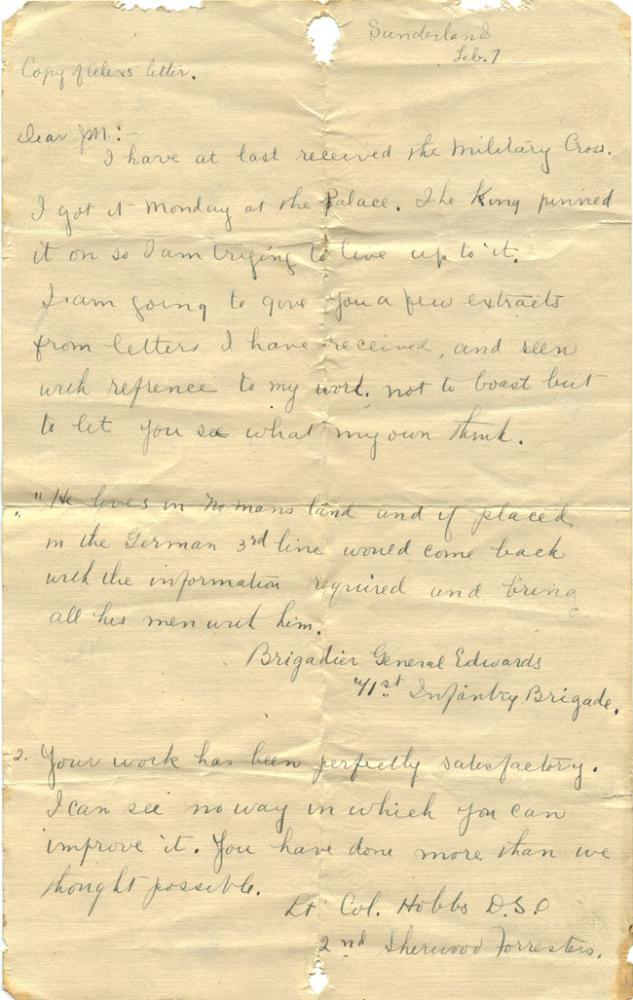 Sunderland
Feb. 7
Copy of Alexs letter.
Dear JM.:-
I have at last received the Military Cross.
I got it Monday at the Palace. The King pinned
it on so I am trying to live up to it.
I am going to give you a few extracts
from letters I have received, and seen
with refrence to my work, not to boast but
to let you see what my own think.
1. "He lives in No mans land and if placed
in the German 3rd line would come back
with the information required and bring
all his men with him.
Brigadier General Edwards
71st Infantry Brigade.
2. Your work has been perfectly satisfactory.
I can see no way in which you can
improve it. You have done more than we
thought possible.
Lt Col. Hobbs D.S.O
2nd Sherwood Forresters.